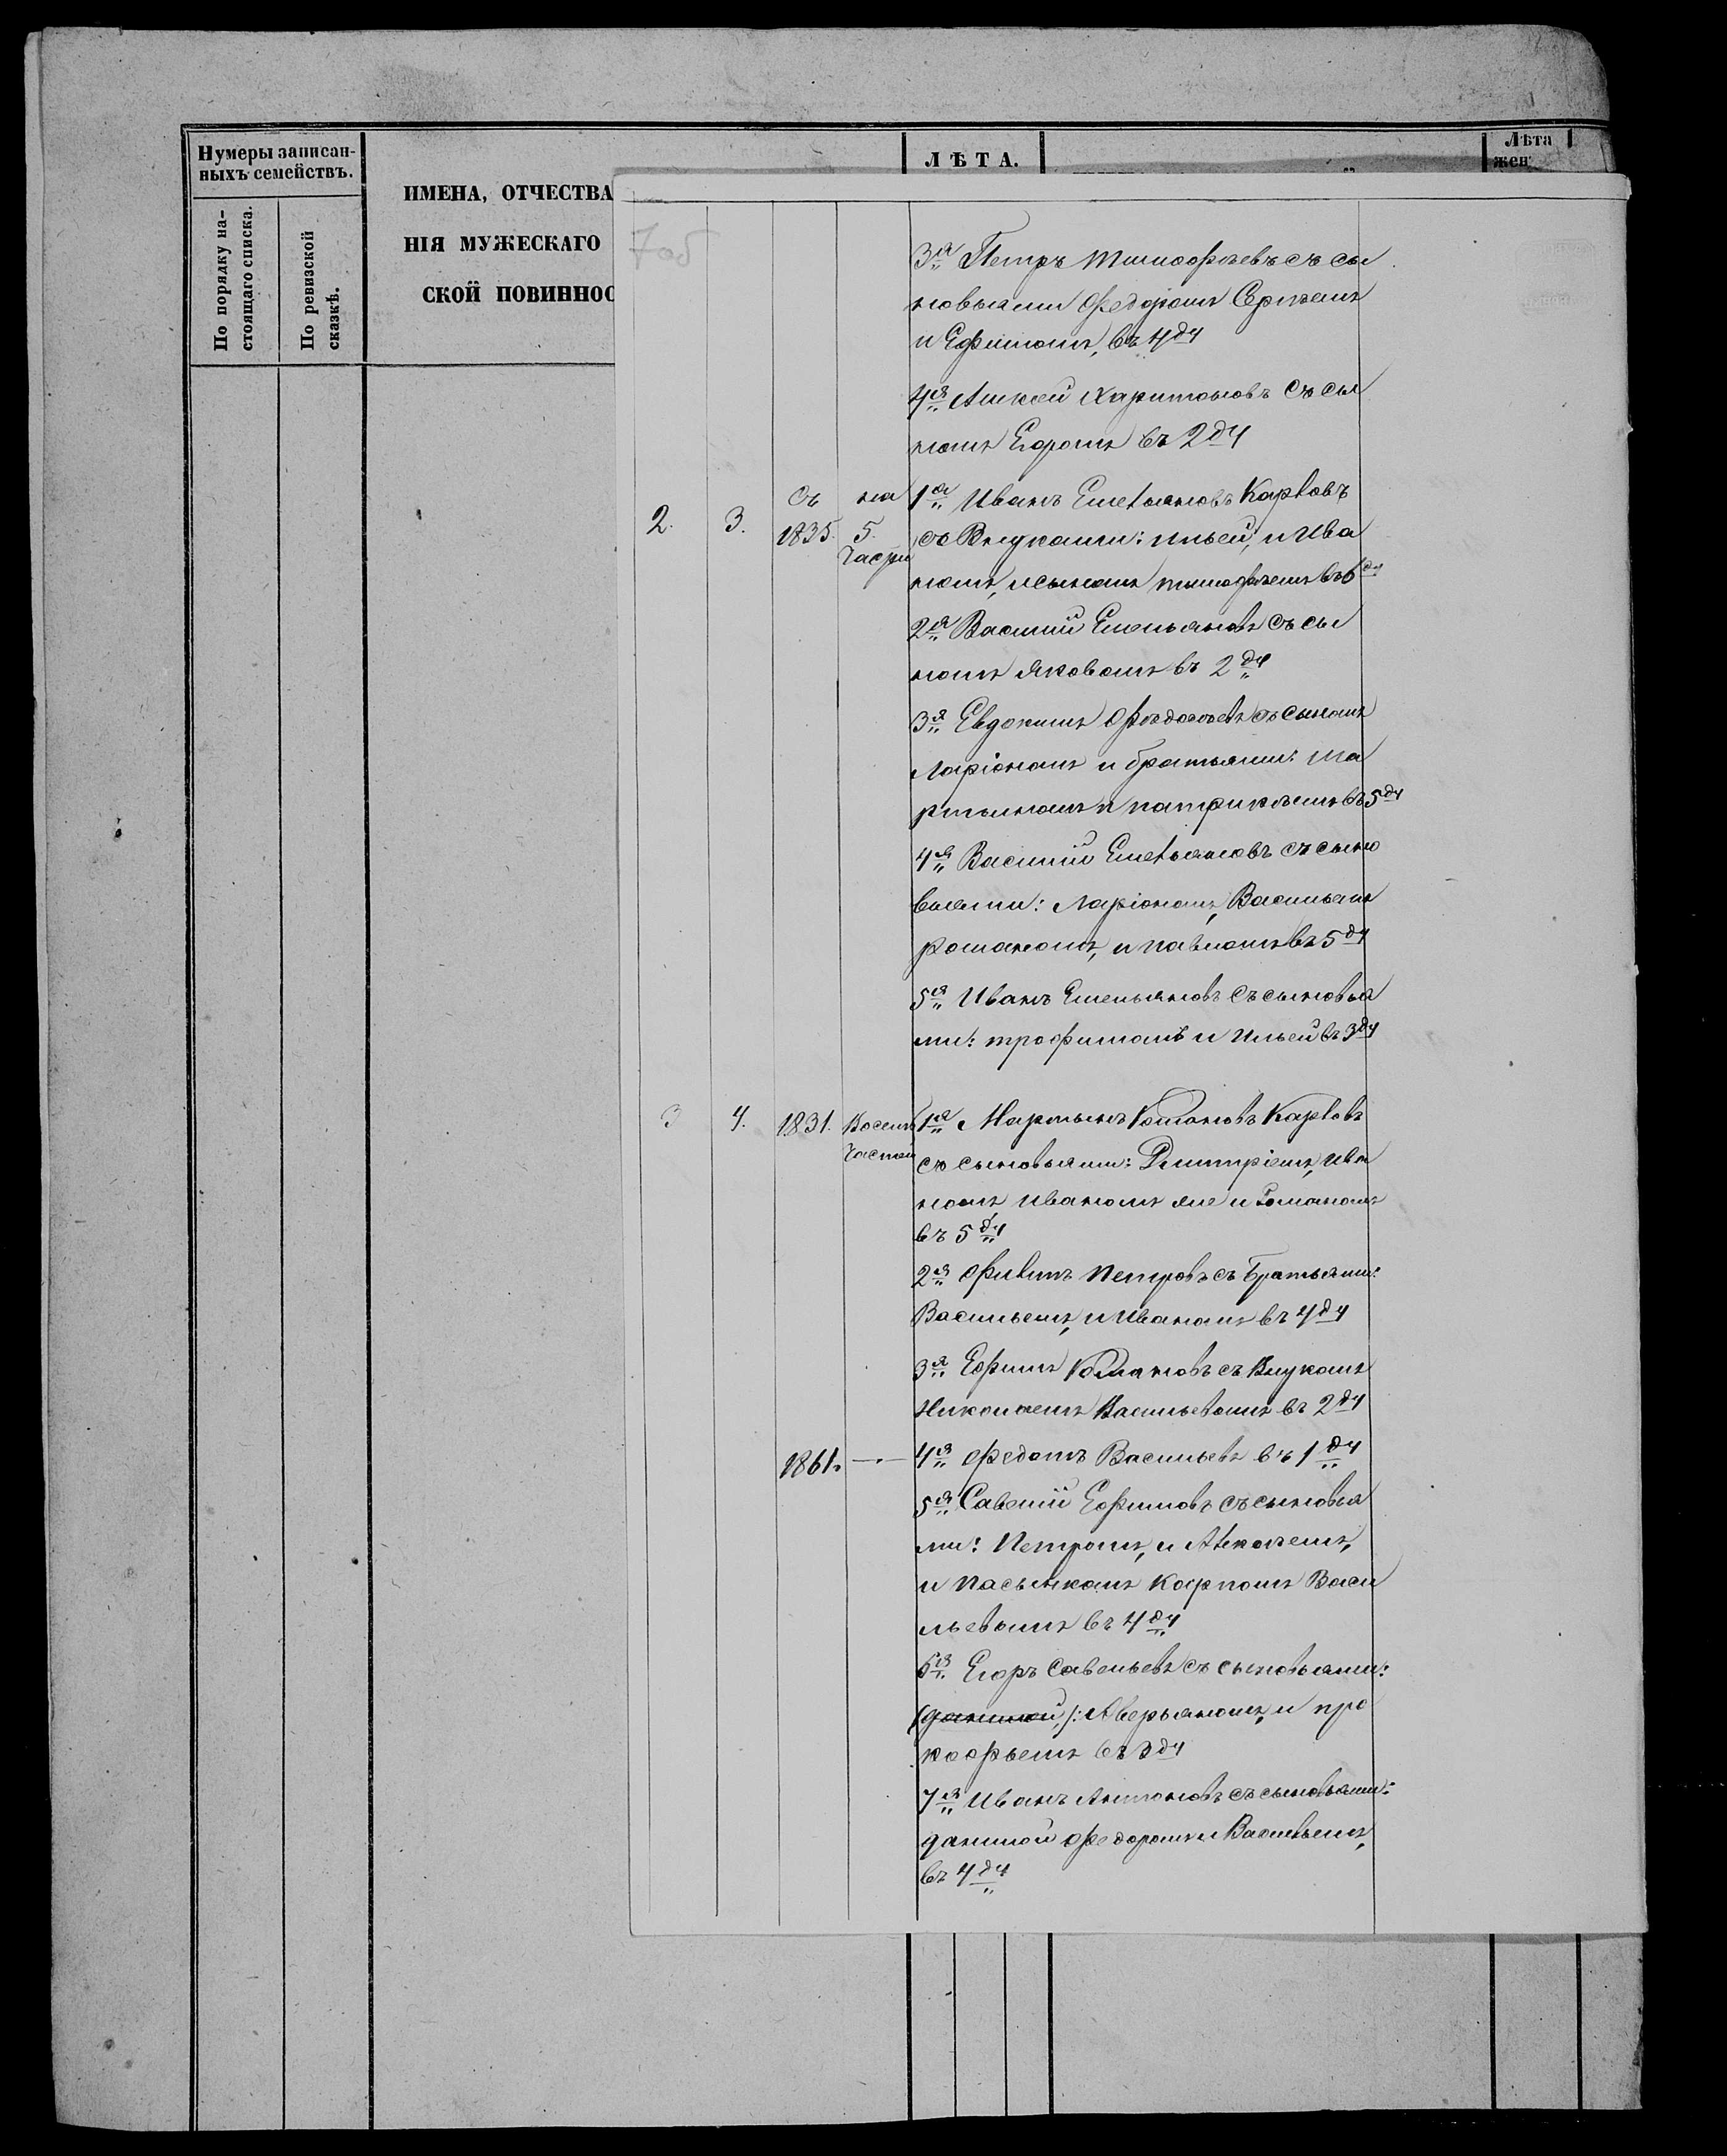 Нумеры записан-
ныхъ семействъ.
По порядку на-
стоящаго списка.
По ревизской
сказкѣ.
ИМЕНА, ОТЧЕСТВА
НІЯ МУЖЕСКАГО
СКОЙ ПОВИННОС
ЛѢТА.
Лѣта
жен
7об
3я Петръ Тимофѣевъ съ сы
новьями Федоромъ Сергѣемъ
и Ефимомъ, въ 4 дч
4я Алексѣй Харитоновъ съ сы
номъ Егоромъ въ 2 дч
2. 3. Съ 1835. на 5. Части
1я Иванъ Емельяновъ Карповъ
съ Внуками: Ильей, и Ива
номъ, и сыномъ тимофѣемъ въ 6 дч
2я Василій Емельяновъ съ сы
номъ Яковомъ въ 2 дч
3я Евдокимъ Федотовъ съ сыномъ
Ларіономъ и братьями: Ма
ртыномъ и патрикѣемъ въ 5 дч
4я Василій Емельяновъ съ сыно
вьями: Ларіономъ, Васильемъ
романомъ, и павломъ въ 5 дч
5я Иванъ Емельяновъ съ сыновья
ми: трофимомъ и Ильей въ 3 дч
3 4. 1831. Восемь Частей
1я Мартынъ Романовъ Карповъ
съ сыновьями: Дмитріемъ, Ива
номъ Иваномъ же и Романомъ
въ 5 дч
2я Филипъ Петровъ съ Братьями:
Васильемъ, и Иваномъ въ 4 дч
3я Ефимъ Романовъ съ Внукомъ
Николаемъ Васильевымъ въ 2 дч
1861. —
4я Федотъ Васильевъ въ 1 дч
5я Савелій Ефимовъ съ сыновья
ми: Петромъ, и Алексѣемъ,
и пасынкомъ Карпомъ Васи
льевымъ въ 4 дч
6я Егоръ Савельевъ съ сыновьями:
(данилой,): Аверьяномъ, и про
кофьемъ въ 3 дч
7я Иванъ Антоновъ съ сыновьями:
данилой Федоромъ и Васильемъ,
въ 4 дч